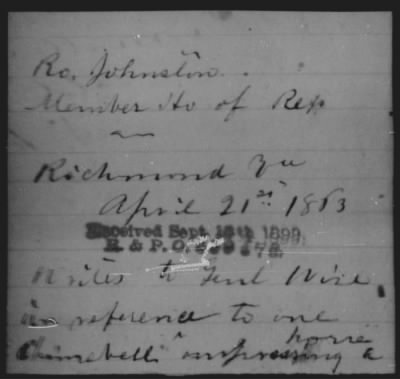 Ro. Johnston.
Member Ho of Rep
Richmond Va
April 21st 1863
Received Sept. 18th 1899
R. & P. O.
Writes to Genl Wise
in reference to one
impressing a
horse